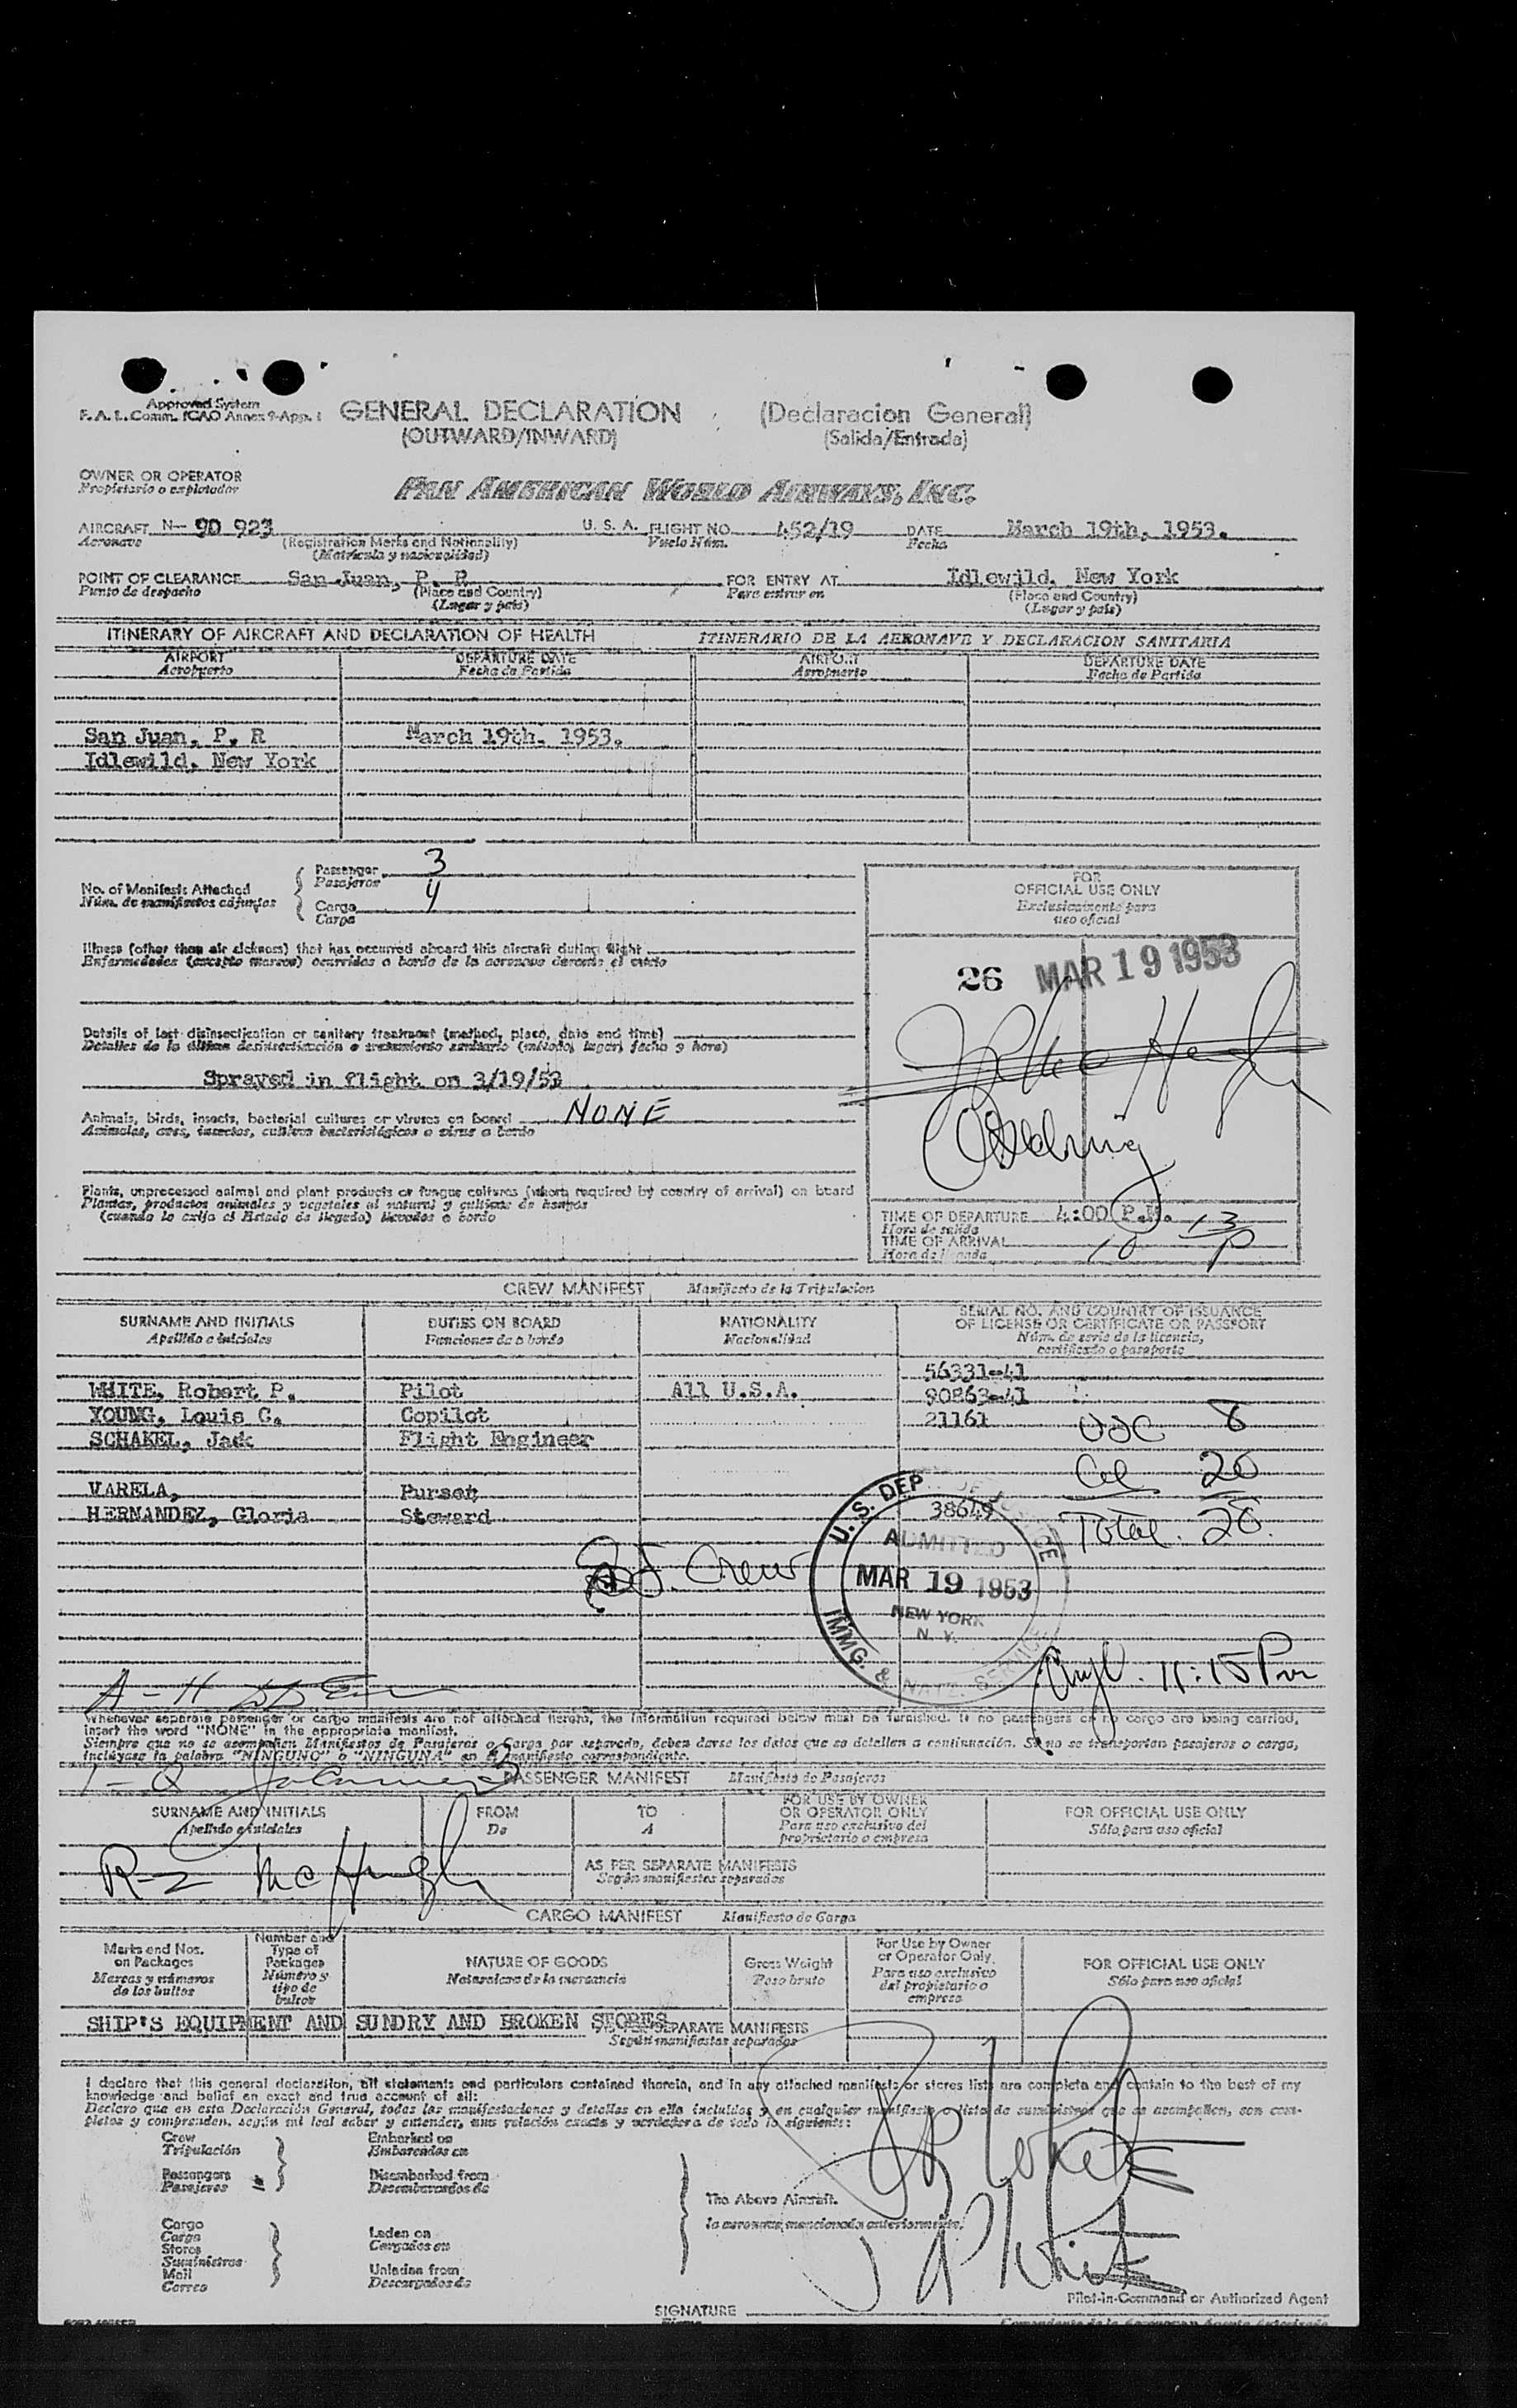 Approved System
F.A.L. Comm. ICAO Annex 9-App. 1
GENERAL DECLARATION (Declaracion General)
(OUTWARD/INWARD) (Salida/Entrada)
OWNER OR OPERATOR
Propietario o explotador
PAN AMERICAN WORLD AIRWAYS, INC.
AIRCRAFT N- 90 923 U. S. A. FLIGHT NO. 452/19 DATE March 19th, 1953.
Aeronave (Registration Marks and Nationality) Vuelo Núm. Fecha
(Matrícula y nacionalidad)
POINT OF CLEARANCE San Juan, P. R. FOR ENTRY AT Idlewild, New York
Punto de despacho (Place and Country) Para entrar en (Place and Country)
(Lugar y país) (Lugar y país)
ITINERARY OF AIRCRAFT AND DECLARATION OF HEALTH ITINERARIO DE LA AERONAVE Y DECLARACION SANITARIA
AIRPORT DEPARTURE DATE AIRPORT DEPARTURE DATE
Aeropuerto Fecha de Partida Aeropuerto Fecha de Partida
San Juan, P. R March 19th, 1953.
Idlewild, New York
No. of Manifests Attached
Núm. de manifiestos adjuntos
Passenger 3
Pasajeros
Cargo 4
Carga
FOR
OFFICIAL USE ONLY
Exclusivamente para
uso oficial
26 MAR 19 1953
Illness (other than air sickness) that has occurred aboard this aircraft during flight
Enfermedades (excepto mareos) ocurridas a bordo de la aeronave durante el vuelo
Details of last disinsectization or sanitary treatment (method, place, date and time)
Detalles de la última desinsectización o tratamiento sanitario (método, lugar, fecha y hora)
Sprayed in flight on 3/19/53
Animals, birds, insects, bacterial cultures or viruses on board NONE
Animales, aves, insectos, cultivos bacteriológicos o virus a bordo
Plants, unprocessed animal and plant products or fungus cultures (where required by country of arrival) on board
Plantas, productos animales y vegetales al natural y cultivos de hongos
(cuando lo exija el Estado de llegada) llevados a bordo
TIME OF DEPARTURE 4:00 P.M.
Hora de salida
TIME OF ARRIVAL 10 13 P
Hora de llegada
CREW MANIFEST Manifiesto de la Tripulacion
SURNAME AND INITIALS DUTIES ON BOARD NATIONALITY SERIAL NO. AND COUNTRY OF ISSUANCE
OF LICENSE OR CERTIFICATE OR PASSPORT
Apellido e iniciales Funciones de a bordo Nacionalidad Núm. de serie de la licencia,
certificado o pasaporte
56331-41
WHITE, Robert P. Pilot All U.S.A. 90863-41
YOUNG, Louis C. Copilot 21161
SCHAKEL, Jack Flight Engineer
USC 8
Cel 20
Total. 28.
VARELA, Purser
HERNANDEZ, Gloria Steward 38649
Crew
U. S. DEP OF JUSTICE
ADMITTED
MAR 19 1953
NEW YORK
N. Y.
IMMG. & NATZ. SERVICE
11:15 Pm
A - H
Whenever separate passenger or cargo manifests are not attached hereto, the information required below must be furnished. If no passengers or no cargo are being carried,
insert the word "NONE" in the appropriate manifest.
Siempre que no se acompañen Manifiestos de Pasajeros o Carga por separado, deben darse los datos que se detallen a continuación. Si no se transportan pasajeros o carga,
inclúyase la palabra "NINGUNO" o "NINGUNA" en el manifiesto correspondiente.
I - Q
PASSENGER MANIFEST Manifiesto de Pasajeros
SURNAME AND INITIALS FROM TO FOR USE BY OWNER
OR OPERATOR ONLY FOR OFFICIAL USE ONLY
Apellido e iniciales De A Para uso exclusivo del
proprietario o empresa Sólo para uso oficial
R-Z McHugh
AS PER SEPARATE MANIFESTS
Según manifiestos separados
CARGO MANIFEST Manifiesto de Carga
Marks and Nos.
on Packages
Marcas y números
de los bultos
Number and
Type of
Packages
Número y
tipo de
bultos
NATURE OF GOODS
Naturaleza de la mercancia
Gross Weight
Peso bruto
For Use by Owner
or Operator Only
Para uso exclusivo
del propietario o
empresa
FOR OFFICIAL USE ONLY
Sólo para uso oficial
SHIP'S EQUIPMENT AND SUNDRY AND BROKEN STORES
AS PER SEPARATE MANIFESTS
Según manifiestos separados
I declare that this general declaration, all statements and particulars contained therein, and in any attached manifests or stores lists are complete and contain to the best of my
knowledge and belief an exact and true account of all:
Declaro que en esta Declaración General, todas las manifestaciones y detalles en ella incluidos y en cualquier manifiesto o lista de suministros que se acompañen, son com-
pletos y comprenden, según mi leal saber y entender, una relación exacta y verdadera de todo lo siguiente:
Crew
Tripulación
Passengers
Pasajeros
Embarked on
Embarcados en
Disembarked from
Desembarcados de
Cargo
Carga
Stores
Suministros
Mail
Correo
Laden on
Cargados en
Unladen from
Descargados de
The Above Aircraft.
la aeronave mencionada anteriormente.
R P White
R P White
Pilot-in-Command or Authorized Agent
SIGNATURE